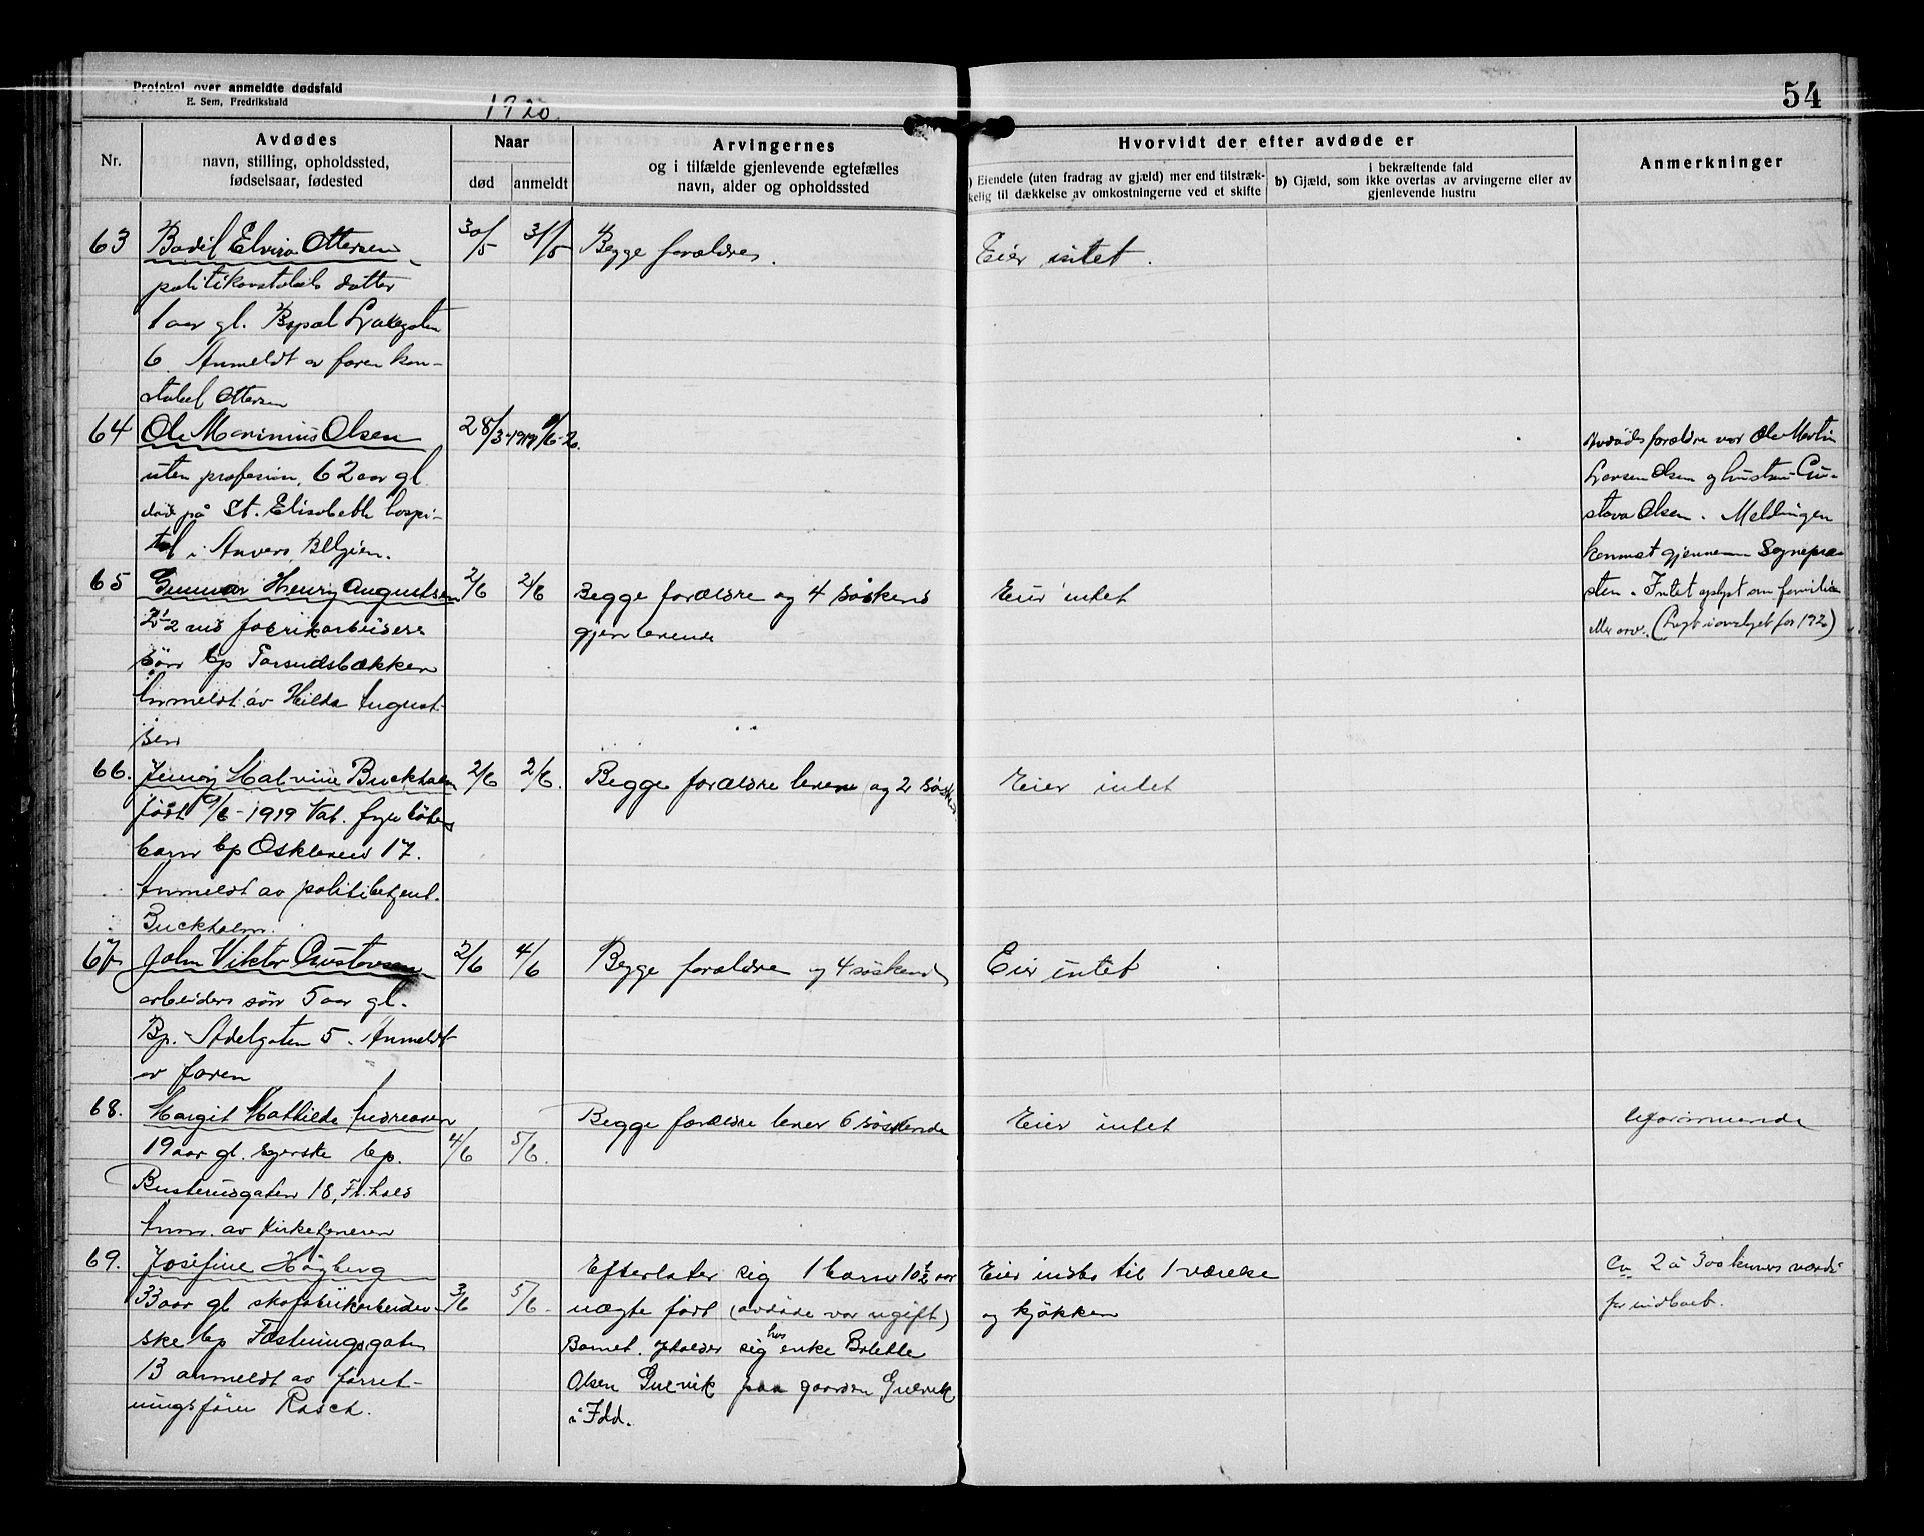 Protokol over anmeldte dødsfald
E. Sem, Fredrikshald
1920.
54
Nr.
Avdødes
navn, stilling, opholdssted,
fødselsaar, fødested
Naar
død
anmeldt
Arvingernes
og i tilfælde gjenlevende egtefælles
navn, alder og opholdssted
Hvorvidt der efter avdøde er
) Eiendele (uten fradrag av gjæld) mer end tilstræk-
kelig til dækkelse av omkostningerne ved et skifte
i bekræftende fald
b) Gjæld, som ikke overtas av arvingerne eller av
gjenlevende hustru
Anmerkninger
63 Bodil Elvira Ottersen 30/5 31/5 Begge forældre. Eier intet.
politikonstabels datter
1 aar gl. Bopæl
6. Anmeldt av faren kon-
stabel Ottersen
64 Ole Marinius Olsen 28/3-1919 /6-20.
uten profesion, 62 aar gl
død på St. Elisabeth hospi-
tal i Anvers Belgien.
Avdødes forældre var Ole Martin
Larsen Olsen og hustru Gu-
stava Olsen. Meldingen
kommet gjennem Sognepre-
sten. Intet oplyst om familien
eller arv. (for 1920)
65 Gunnar Henry Augustsen 2/6 2/6 Begge forældre og 4 søskend Eier intet
2 1/2 md fabrikarbeiders gjenlevende
søn bp
Anmeldt av Hilda August-
sen
66. Jenny Malvine Buckholm 2/6 2/6. Begge forældre lever og 2 søskend Eier intet
født 9/6-1919
barn bp Oskleven 17.
Anmeldt av politibetjent.
Buckholm.
67 John Viktor Gustavsen 2/6 4/6 Begge forældre og 4 søskend Eier intet
arbeiders søn 5 aar gl.
Bp. Adelgaten 5. Anmeldt
av faren
68. Margit Mathilde Andreasen 4/6 5/6. Begge forældre lever 6 søskende Eier intet uformuende
19 aar gl. syerske bp.
18, Fr.hald
Anm. av Kirketjeneren
69. Josefine Høgberg 3/6 5/6. Efterlater sig 1 barn 10 1/2 aar Eier indbo til 1 værelse
33 aar gl skofabrikarbeider- uægte født (avdøde var ugift) og kjøkken
ske bp Fæstningsgaten Barnet opholder sig hos enke Bolette
13 anmeldt av forret- Olsen Gulvik paa gaarden Gulvik
ningsfører Rasch. i Idd.
Ca 2 a 300 kroners værdi
for indboet.